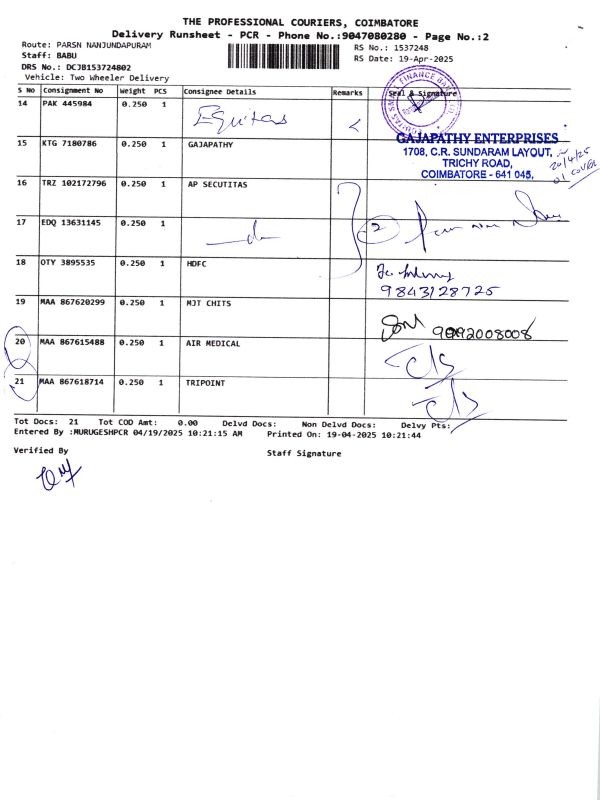 THE PROFESSIONAL COURIERS, COIMBATORE
Delivery Runsheet - PCR - Phone No.:9047080280 - Page No.:2
Route: PARSN NANJUNDAPURAM
RS No.: 1537248
Staff: BABU
RS Date: 19-Apr-2025
DRS No.: DCJB153724802
Vehicle: Two Wheeler Delivery
S No Consignment No Weight PCS Consignee Details Remarks Seal & Signature
14 PAK 445984 0.250 1 Equitas
15 KTG 7180786 0.250 1 GAJAPATHY
GAJAPATHY ENTERPRISES
1708, C.R. SUNDARAM LAYOUT,
TRICHY ROAD,
COIMBATORE - 641 045,
20/4/25
01 COVER
16 TRZ 102172796 0.250 1 AP SECUTITAS
17 EDQ 13631145 0.250 1 2
18 OTY 3895535 0.250 1 HDFC
9843128725
19 MAA 867620299 0.250 1 MJT CHITS
9092008008
20 MAA 867615488 0.250 1 AIR MEDICAL
21 MAA 867618714 0.250 1 TRIPOINT
Tot Docs: 21 Tot COD Amt: 0.00 Delvd Docs: Non Delvd Docs: Delvy Pts:
Entered By :MURUGESHPCR 04/19/2025 10:21:15 AM Printed On: 19-04-2025 10:21:44
Verified By
Staff Signature